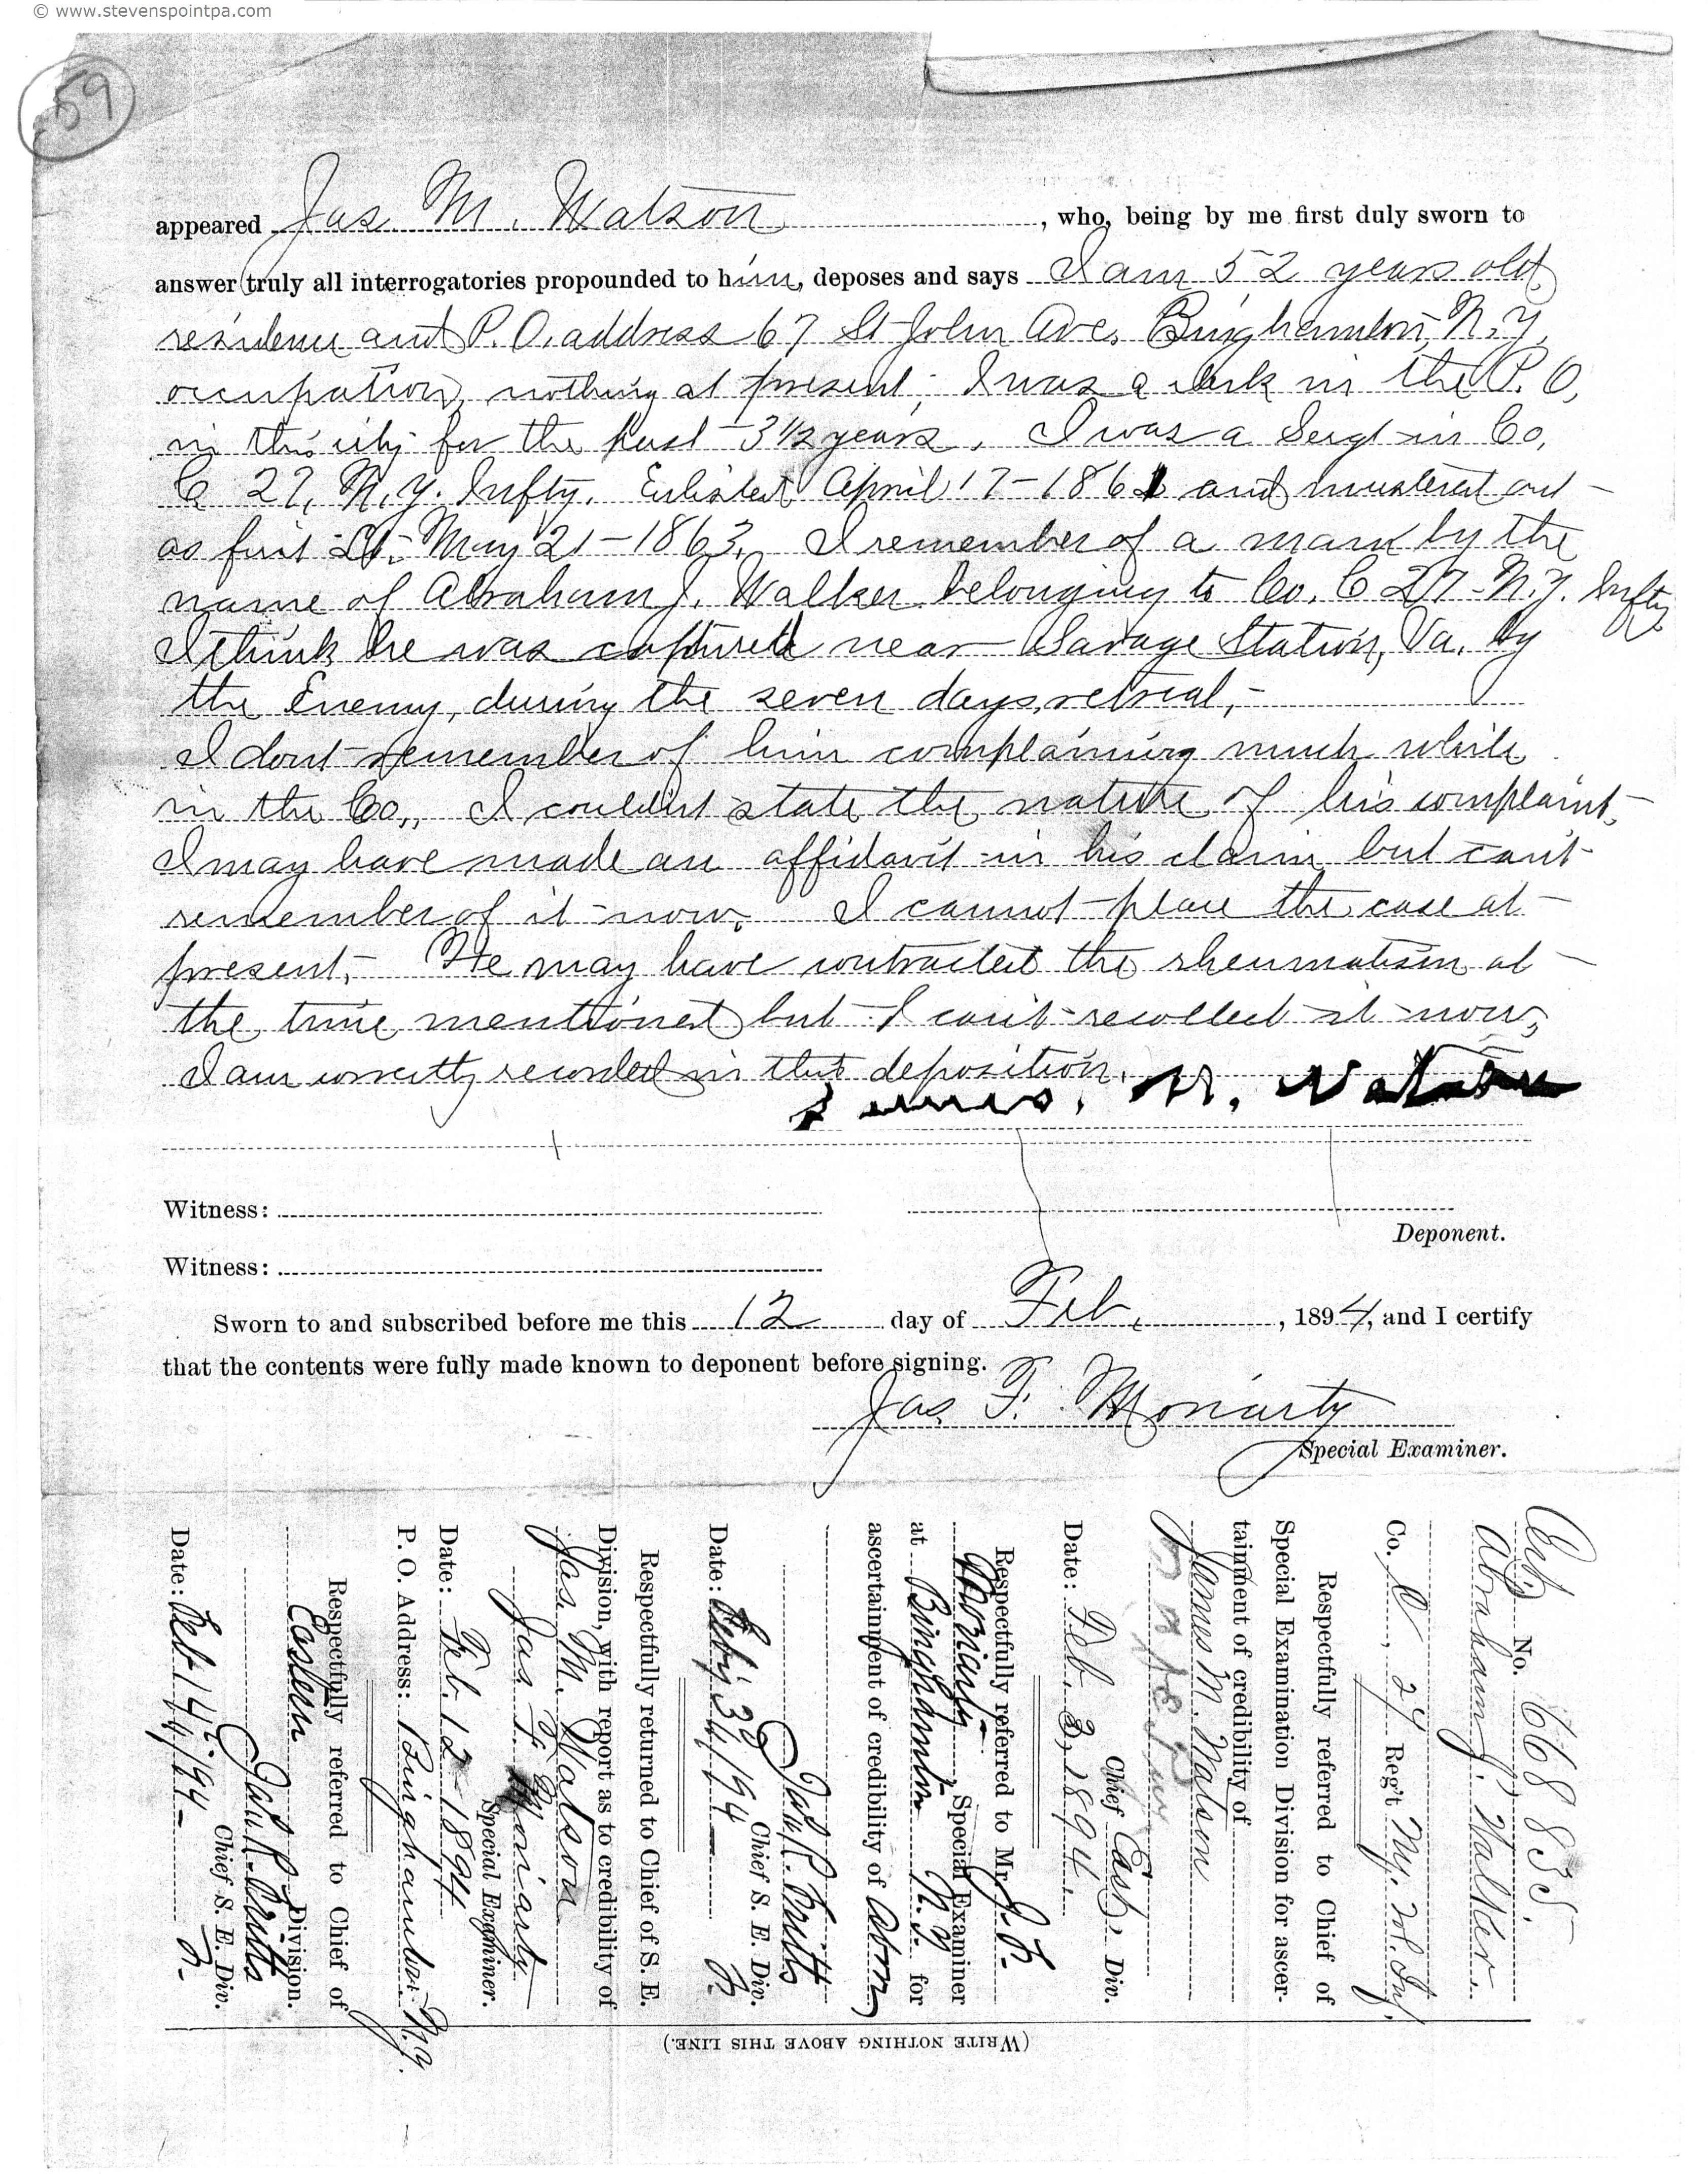 © www.stevenspointpa.com
59
appeared Jas. M. Watson, who, being by me first duly sworn to
answer truly all interrogatories propounded to him, deposes and says I am 52 years old,
residence and P. O. address 67 St John Ave. Binghamton, N. Y,
occupation, nothing at present; I was a clerk in the P. O,
in this city for the past 3 1/2 years. I was a Sergt in Co,
C 27, N. Y. Infty. Enlisted April 17-1861 and mustered out
as first Lt. May 21-1863. I remember of a man by the
name of Abraham J. Walker belonging to Co. C 27-N.Y. Infty
I think he was captured near Savage Station, Va. by
the Enemy, during the seven days retreat,-
I dont remember of him complaining much while
in the Co., I couldnt state the nature of his complaint,
I may have made an affidavit in his claim but cant
remember of it now. I cannot place the case at
present,- He may have contracted the rheumatism at
the time mentioned but I can't recollect it now,
I am correctly recorded in this deposition.
James. M. Watson
Witness:
Deponent.
Witness:
Sworn to and subscribed before me this 12 day of Feb, 1894, and I certify
that the contents were fully made known to deponent before signing.
Jas. F. Moriarty
Special Examiner.
No. 668835.
Abraham J. Walker.
Co. C, 27 Reg't N.Y. Vol. Inf.
Respectfully referred to Chief of
Special Examination Division for ascer-
tainment of credibility of
James M. Watson
Chief East. Div.
Date: Feb 3, 1894.
Respectfully referred to Mr. J. F.
Moriarty, Special Examiner
at Binghamton N.Y. for
ascertainment of credibility of above
Chief S. E. Div.
Date: Feby 3d/94
Respectfully returned to Chief of S. E.
Division, with report as to credibility of
Jas. M. Watson
Jas. F. Moriarty
Special Examiner.
Date: Feb. 12-1894
P. O. Address: Binghamton N.Y.
Respectfully referred to Chief of
Eastern Division.
Chief S. E. Div.
Date: Feb 14/94
(WRITE NOTHING ABOVE THIS LINE.)